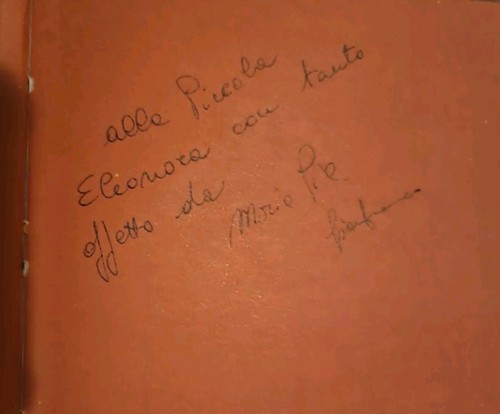 alla Piccola
Eleonora con tanto
affetto da Maria Pia